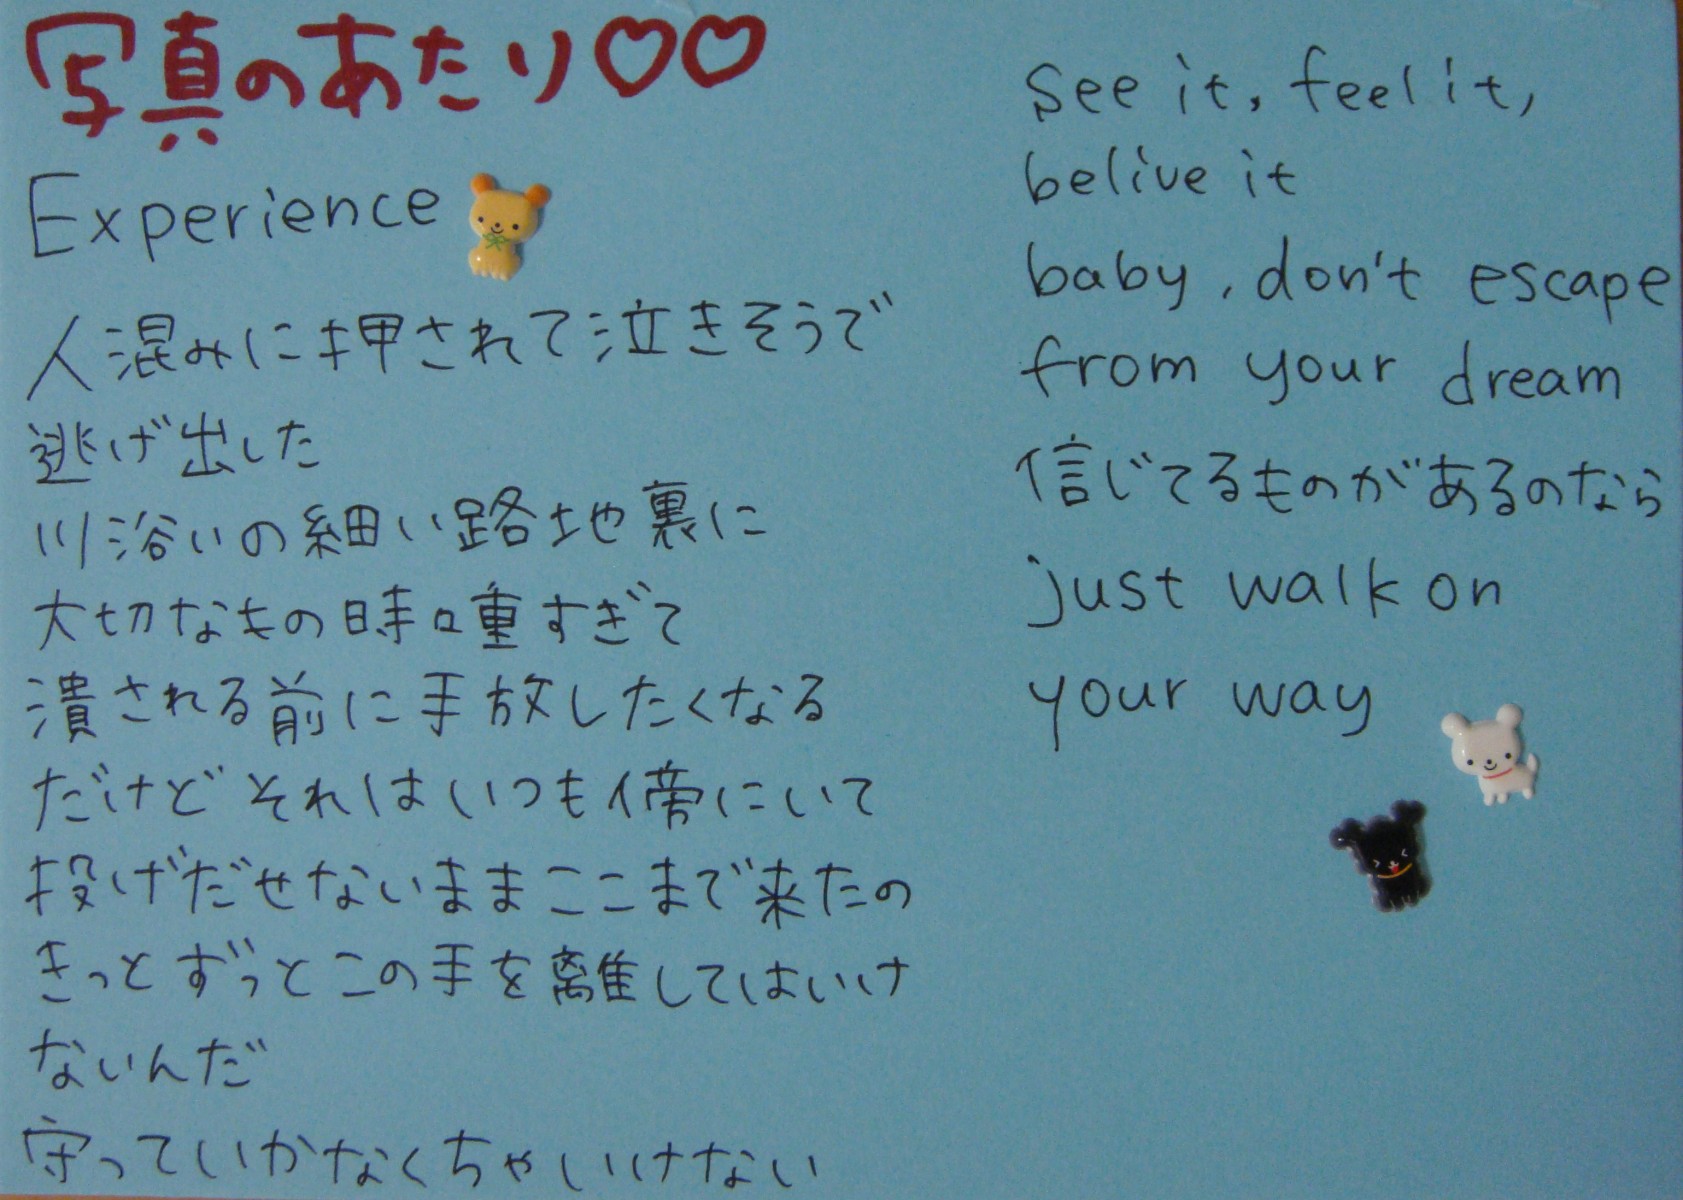 写真のあたり♡♡
Experience
人混みに押されて泣きそうで
逃げ出した
川沿いの細い路地裏に
大切なもの時口重すぎて
潰される前に手放したくなる
だけどそれはいつも傍にいて
投げだせないままここまで来たの
きっとずっとこの手を離してはいけ
ないんだ
守っていかなくちゃいけない
see it, feel it,
belive it
baby, don't escape
from your dream
信じてるものがあるのなら
just walk on
your way